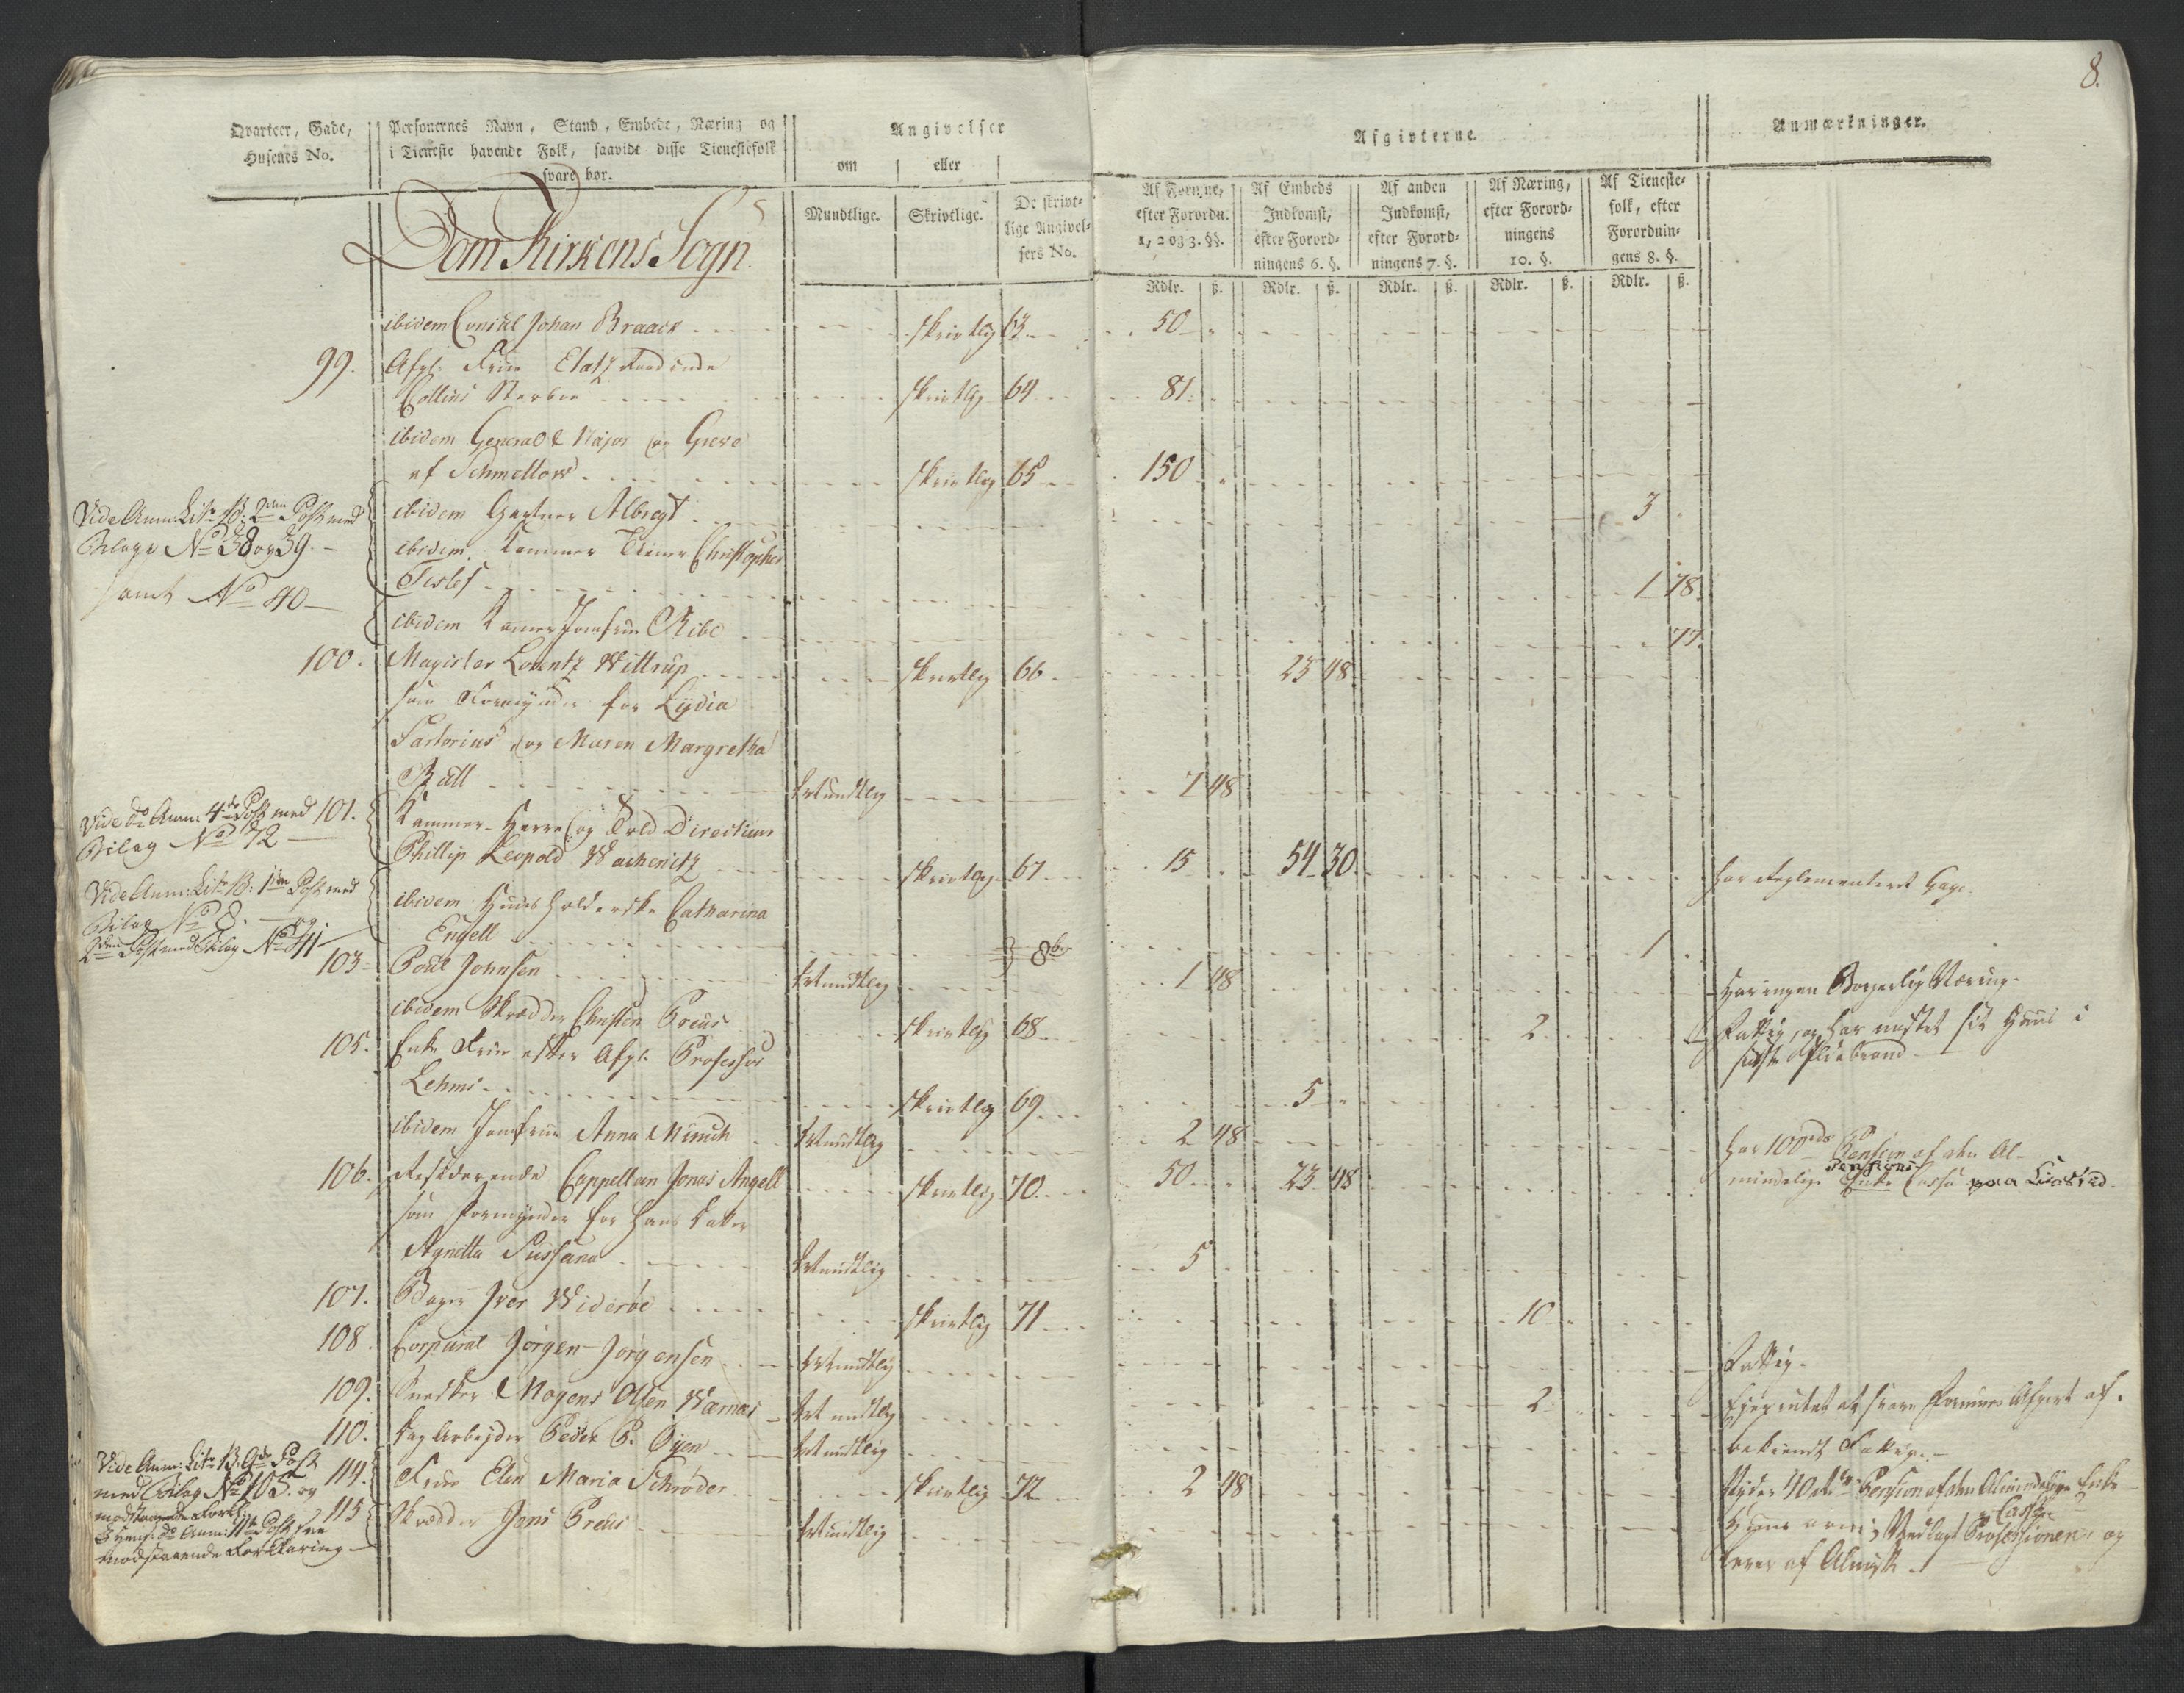 8.
Qvarteer, Gade, Husenes No.
Personernes Navn, Stand, Embede, Næring og
i Tieneste havende Folk, saavidt disse Tienestefolk
svare bør.
Angivelser
om eller
Mundtlige. Skrivtlige. De skrivt-
lige Angivel-
sers No.
Afgivterne.
Af Formue, efter Forordn. 1, 2 og 3. §§.
Af Embeds Indkomst, efter Forord-
ningens 6. §.
Af anden Indkomst, efter Forord-
ningens 7. §.
Af Næring, efter Forord-
ningens 10. §.
Af Tieneste-
folk, efter Forordnin-
gens 8. §.
Anmærkninger.
Rdlr. ß. Rdlr. ß. Rdlr. ß. Rdlr. ß. Rdlr. ß.
Dom Kirkens Sogn
ibidem Consul Johan Braack skrivtlig 63 50
99. Afgl. Frue Etatz Raadinde
Collins Sterboe skrivtlig 64 81
ibidem General Major og Greve
af Schmettow skrivtlig 65 150
Vide Anm: Litr B. 2den Post med
Bilage No 38 og 39.
samt No 40
ibidem Gartner Albregt 3
ibidem Kammer Tiener Christopher
Tislef 1 78
ibidem Kammer Jomfrue Ribe 77
100. Magister Lorentz Wittrup skrivtlig 66 23 48
som Formynder for Lydia
Sartorius og Maren Margretha
Bull Mundtlig 7 48
Vide do Anm: 4de Post med
Bilag No 72
101. Kammer-Herre og Told Directeur
Phillip Leopold Wachenitz skrivtlig 67 15 54 30 har Reglementeret Gage.
Vide Anm: Litr B. 1ste Post med
Bilag No 8. og
2den Post med Bilag No 41
ibidem Huusholderske Catharina
Engell 8 1
103 Poul Johnsen Mundtlig 1 48 Har ingen Borgerlig Næring.
ibidem Skrædder Christen Preus skrivtlig 68 2 Fattig, og har mistet sit Huus i
sidste Ildebrand
105. Enke Frue efter Afgl. Professor
Lehms skrivtlig 69 5
ibidem Jomfrue Anna Münch Mundtlig 2 48 har 100 rdr Pension af den Al-
mindelige Pensions Casse
106. Residerende Cappellan Jonas Angell skrivtlig 70 50 23 48
som Formynder for hans Datter
Agnetta Sussana Mundtlig 5
107. Bager Iver Widerøe skrivtlig 71 10
108. Corporal Jørgen Jørgensen Mundtlig Fattig.
109. Snedker Mogens Olsen Wærnes Mundtlig 2
110. Dag Arbejder Peder P. Øyen Mundtlig bekiendt Fattig.
Vide Anm: Litr B. 9de Post
med Bilag No 105. og
modstaaende Forkl:
114. Frue Elen Maria Schrøder skrivtlig 72 2 48 Nyder 40 rdr Pension af den Almindelige Enke
Casse.
do Anm: 11te Post
modstaaende Forklaring
115 Skrædder Jens Preus Mundtlig Professionen, og
lever af Almisse.